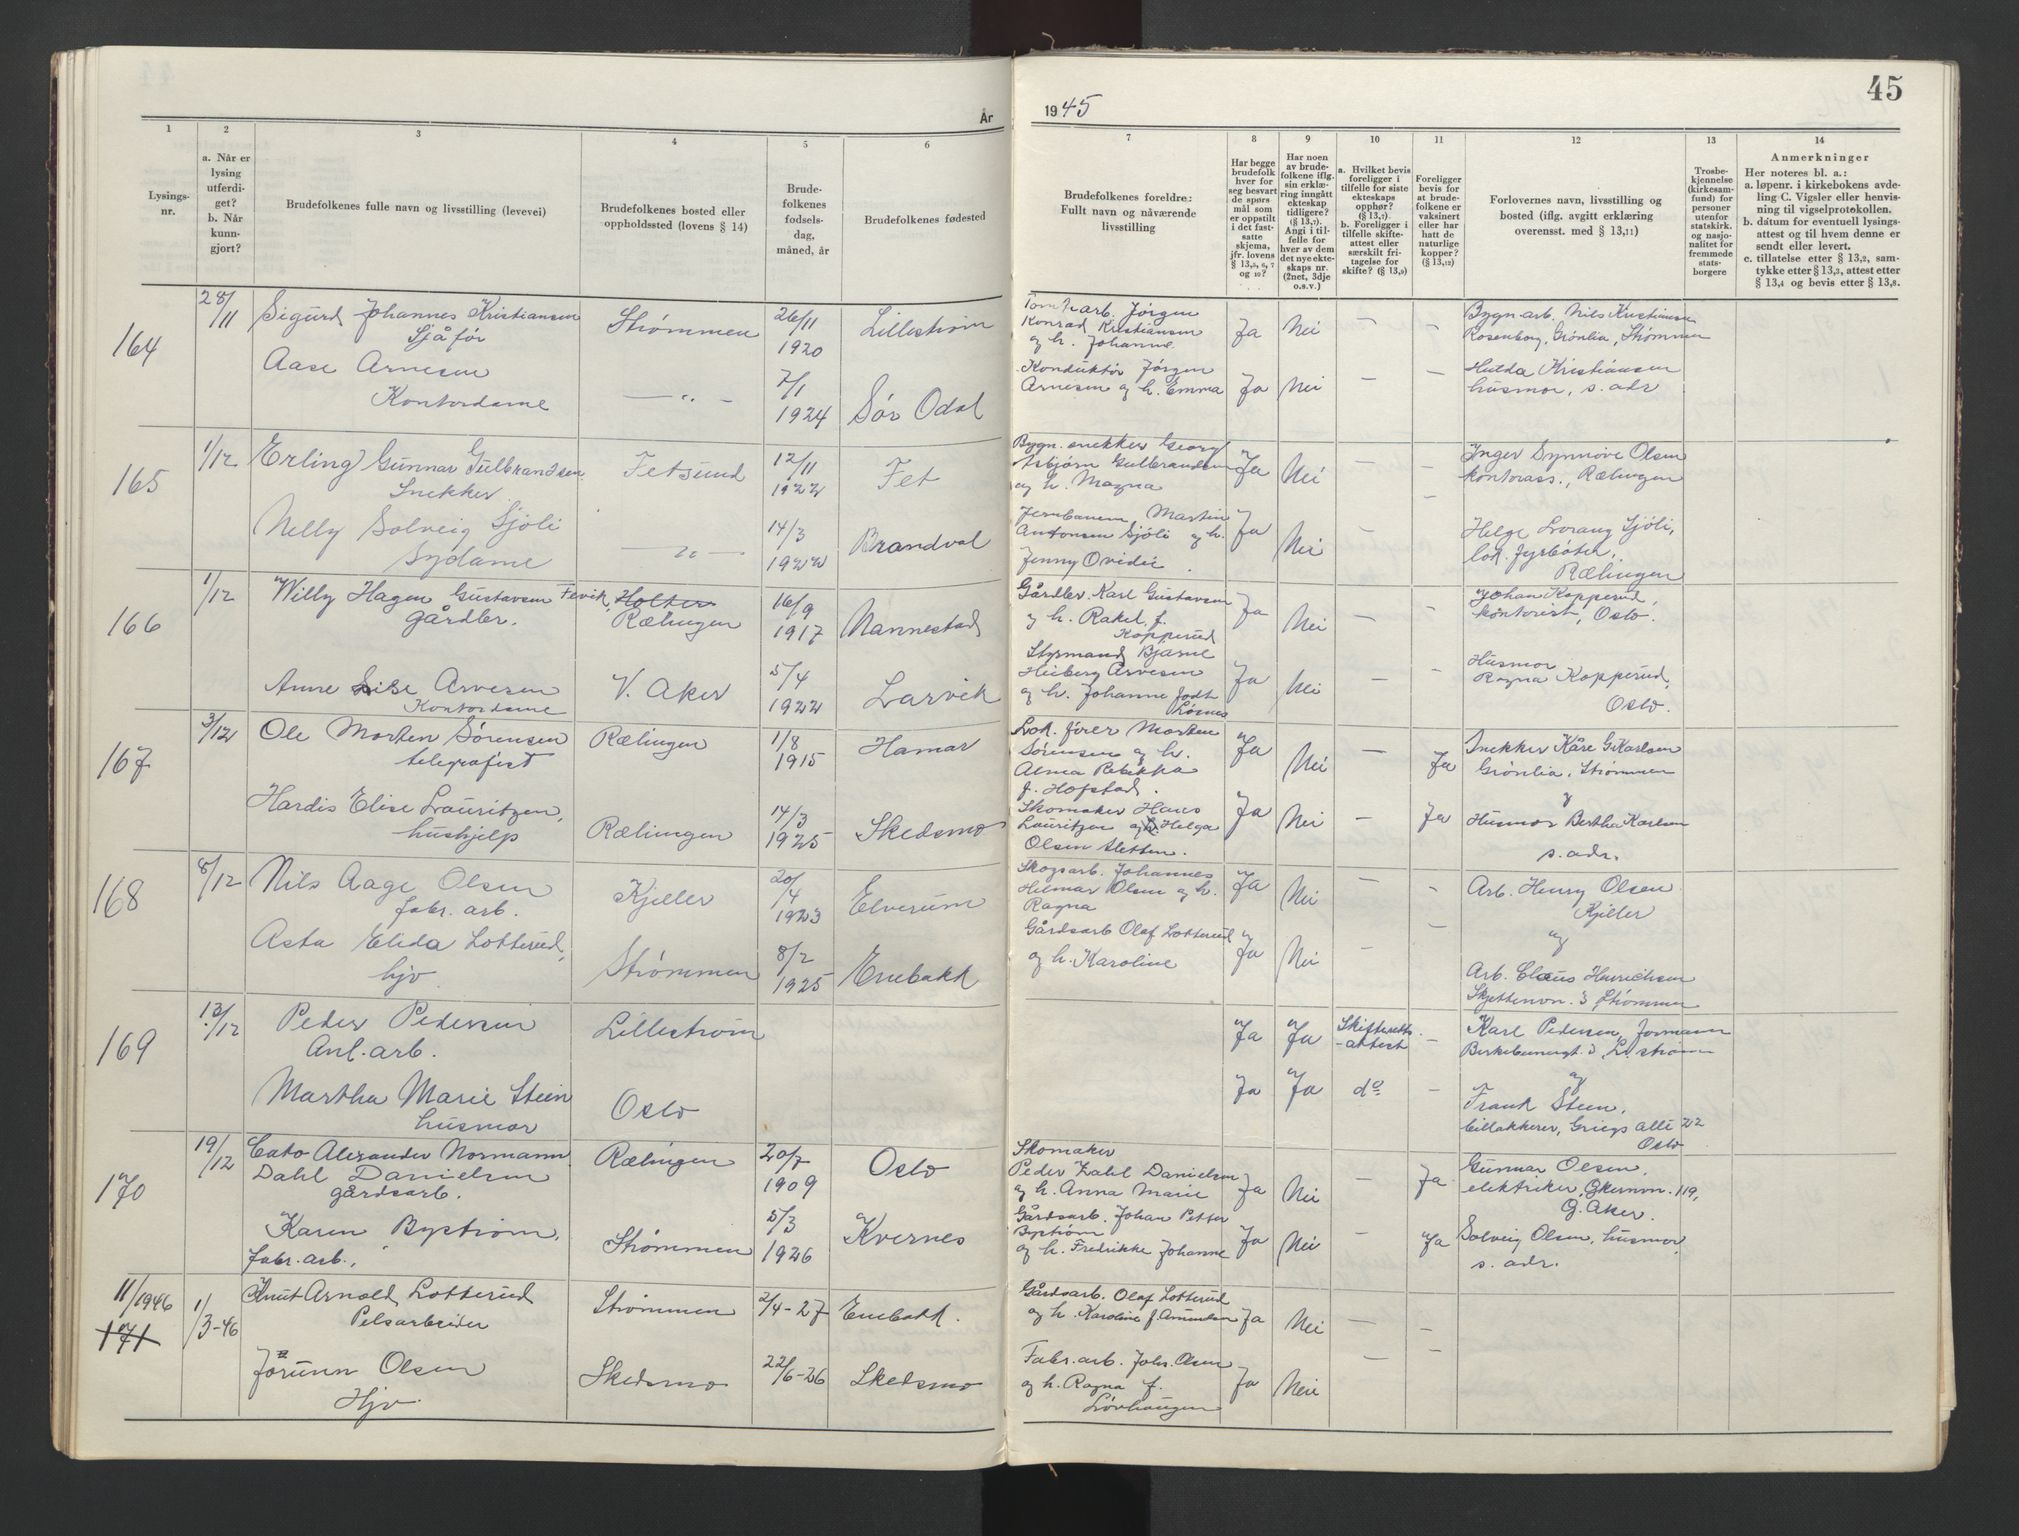 År
1945
45
1
2
3
4
5
6
7
8
9
10
11
12
13
14
Lysings-
nr.
a. Når er
lysing
utferdi-
get?
b. Når
kunn-
gjort?
Brudefolkenes fulle navn og livsstilling (levevei)
Brudefolkenes bosted eller
oppholdssted (lovens § 14)
Brude-
folkenes
fødsels-
dag,
måned, år
Brudefolkenes fødested
Brudefolkenes foreldre:
Fullt navn og nåværende
livsstilling
Har begge
brudefolk
hver for
seg besvart
de spørs-
mål som
er oppstilt
i det fast-
satte
skjema,
jfr. lovens
§ 13,5, 6, 7
og 10?
Har noen
av brude-
folkene iflg.
sin erklæ-
ring inngått
ekteskap
tidligere?
(§ 13,7).
Angi i til-
felle for
hver av dem
det nye ekte-
skaps nr.
(2net, 3dje
o.s.v.)
a. Hvilket bevis
foreligger i
tilfelle for siste
ekteskaps
opphør?
(§ 13,7)
b. Foreligger i
tilfelle skifte-
attest eller
særskilt fri-
tagelse for
skifte? (§ 13,9)
Foreligger
bevis for
at brude-
folkene er
vaksinert
eller har
hatt de
naturlige
kopper?
(§ 13,12)
Forlovernes navn, livsstilling og
bosted (iflg. avgitt erklæring
overensst. med § 13,11)
Trosbe-
kjennelse
(kirkesam-
fund) for
personer
utenfor
statskirk.
og nasjo-
nalitet for
fremmede
stats-
borgere
Anmerkninger
Her noteres bl. a.:
a. løpenr. i kirkebokens avde-
ling C. Vigsler eller henvis-
ning til vigselprotokollen.
b. dåtum for eventuell lysings-
attest og til hvem denne er
sendt eller levert.
c. tillatelse etter § 13,2, sam-
tykke etter § 13,3, attest etter
§ 13,4 og bevis etter § 13,8.
164
28/11
Sigurd Johannes Kristiansen
Sjåfør
Strømmen
26/11
1920
Lillestrøm
arb. Jørgen
Konrad Kristiansen
og h. Johanne
Ja
Nei
–
–
Bygn.arb. Nils Kristiansen
Rosenborg, Grønlia, Strømmen
Aase Arnesen
Kontordame
— " —
7/1
1924
Sør Odal
Konduktør Jørgen
Arnesen og h. Emma
Ja
Nei
–
–
Hulda Kristiansen
husmor, s. adr
165
1/12
Erling Gunnar Gulbrandsen
Snekker
Fetsund
12/11
1922
Fet
Bygn. snekker Georg
Asbjørn Gulbrandsen
og h. Magna
Ja
Nei
–
–
Inger Synnøve Olsen
kontorass., Rælingen
Nelly Solveig Sjöli
Sydame
— " —
14/3
1922
Brandval
Jernbanem. Martin
Antonsen Sjöli og h.
Jenny Ovidie
Ja
Nei
–
–
Helge Lorang Sjöli,
lok. fyrbøter,
Rælingen
166
1/12
Willy Hagen Gustavsen Fevik,
gårdbr.
Holter
Rælingen
16/9
1917
Nannestad
Gårdbr. Karl Gustavsen
og h. Rakel f.
Kopperud
Ja
Nei
–
–
Johan Kopperud,
kontorist, Oslo.
Anne Lise Arvesen
Kontordame
V. Aker
5/4
1922
Larvik
Styrmand Bjarne
Heiberg Arvesen
og h. Johanne
Ja
Nei
–
–
Husmor
Ragna Kopperud,
Oslo.
167
3/12
Ole Morten Sørensen
telegrafist
Rælingen
1/8
1915
Hamar
Lok. fører Morten
Sørensen og h.
Alma Rebekka
f. Hofstad.
Ja
Nei
–
Ja
Snekker Kåre G Karlsen
Grønlia, Strømmen
Hardis Elise Lauritzen,
hushjelp
Rælingen
14/3
1925
Skedsmo
Skomaker Hans
Lauritzen og h Helga
Olsen Sletten.
Ja
Nei
–
Ja
og
Husmor Bertha Karlsen
s. adr.
168
8/12
Nils Aage Olsen
fabr. arb.
Kjeller
20/4
1923
Elverum
Skogsarb. Johannes
Hilmar Olsen og h.
Ragna
Ja
Nei
–
–
Arb. Henry Olsen
Kjeller
Asta Elida Lotterud,
hjv.
Strømmen
8/2
1925
Enebakk
Gårdsarb Olaf Lotterud
og h. Karoline
Ja
Nei
–
–
og
Arb. Claus Henrichsen
Skjettenvn. 3 Strømmen
169
13/12
Peder Pedersen
Anl. arb.
Lillestrøm
Ja
Ja
Skifteretts
-attest
–
Karl Pedersen, formann
Birkebeinergt. 3, L. strøm
Martha Marie Steen
husmor
Oslo
Ja
Ja
do
–
og
Frank Steen,
billakkerer, Griegs alle 22
Oslo
170
19/12
Cato Alexander Normann
Dahl Danielsen
gårdsarb.
Rælingen
20/7
1909
Oslo
Skomaker
Peder Dahl Danielsen
og h. Anna Marie
Ja
Nei
–
Ja
Gunnar Olsen,
elektriker, Økernvn. 119,
Ø. Aker.
Karen Bystrøm,
fabr. arb.,
Strømmen
5/3
1926
Kvernes
Gårdsarb. Johan Petter
Bystrøm
og h. Fredrikke Johanne
Ja
Nei
–
Ja
Solveig Olsen, husmor,
s. adr.
11/1946
171
1/3-46
Knut Arnold Lotterud
Pelsarbeider
Strømmen
2/4-27
Enebakk.
Gårdsarb. Olaf Lotterud
og h. Karoline f. Amundsen
Ja
Nei
–
–
Jorunn Olsen
Hjv.
Skedsmo
22/6-26
Skedsmo
Fabr. arb. Johs. Olsen
og h. Ragna f.
Løvhaugen
Ja
Nei
–
–